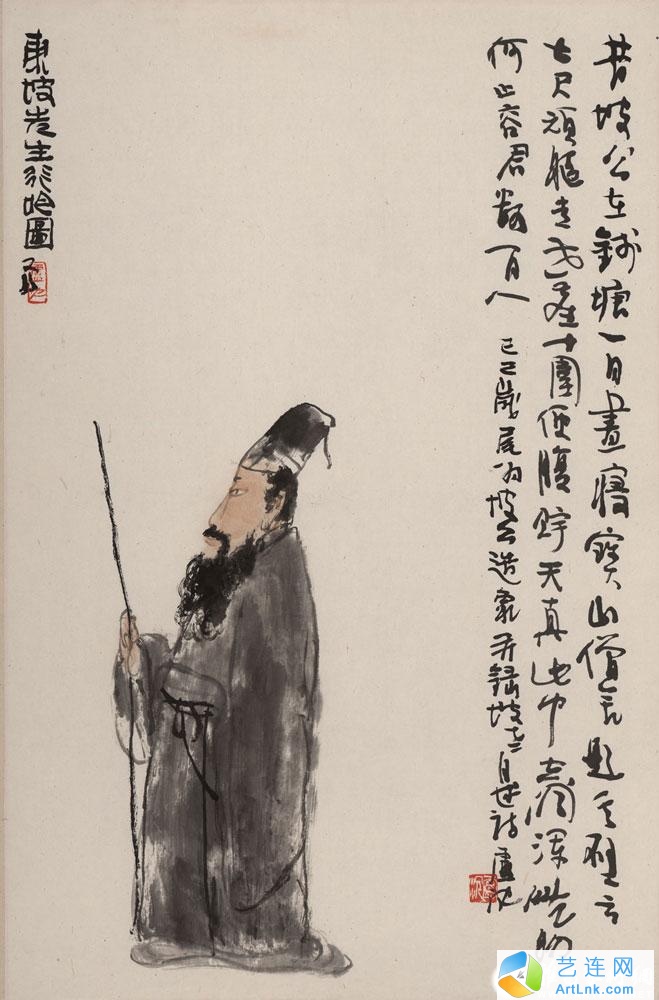 昔坡公在錢塘一日晝寢寶山僧舍題其壁云
七尺頑軀走世塵十圍便腹貯天真此中空洞渾無物
何止容君數百人 己巳歲尾為坡公造象并錄坡自述詩盧沉
東坡先生行吟圖
艺连网
ArtLnk.com